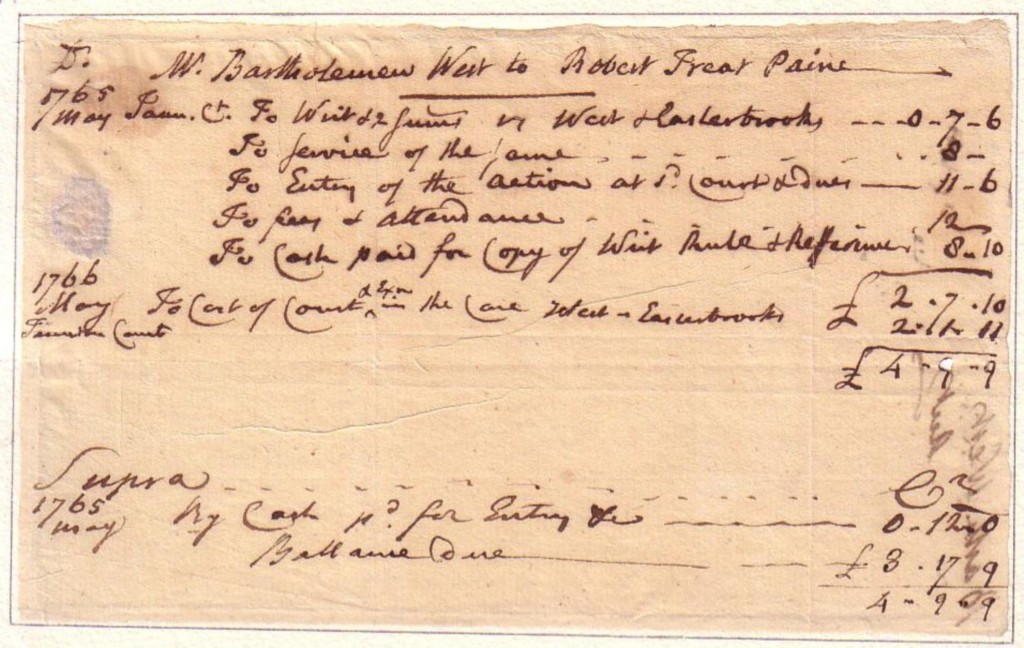 Dr. Mr. Bartholemew West to Robert Treat Paine
1765
May Taun. Ct. To Writ & 2 Sums vs West & Easterbrooks --- 0-7-6
To Service of the same - - - 8 -
To Entry of the action at sd. Court & dues — 11-6
To fees & attendance - 12
To Cash paid for Copy of Writ Rule & Refference 8-10
£ 2-7-10
1766
May To Cost of Court & Exn in the Case West - Easterbrooks 2-1-11
Taunton Court
£ 4-9-9
Supra - - - Cr
1765
May By Cash pd. for Entry &c — 0-12-0
Ballance Due — £ 3-17-9
4-9-9